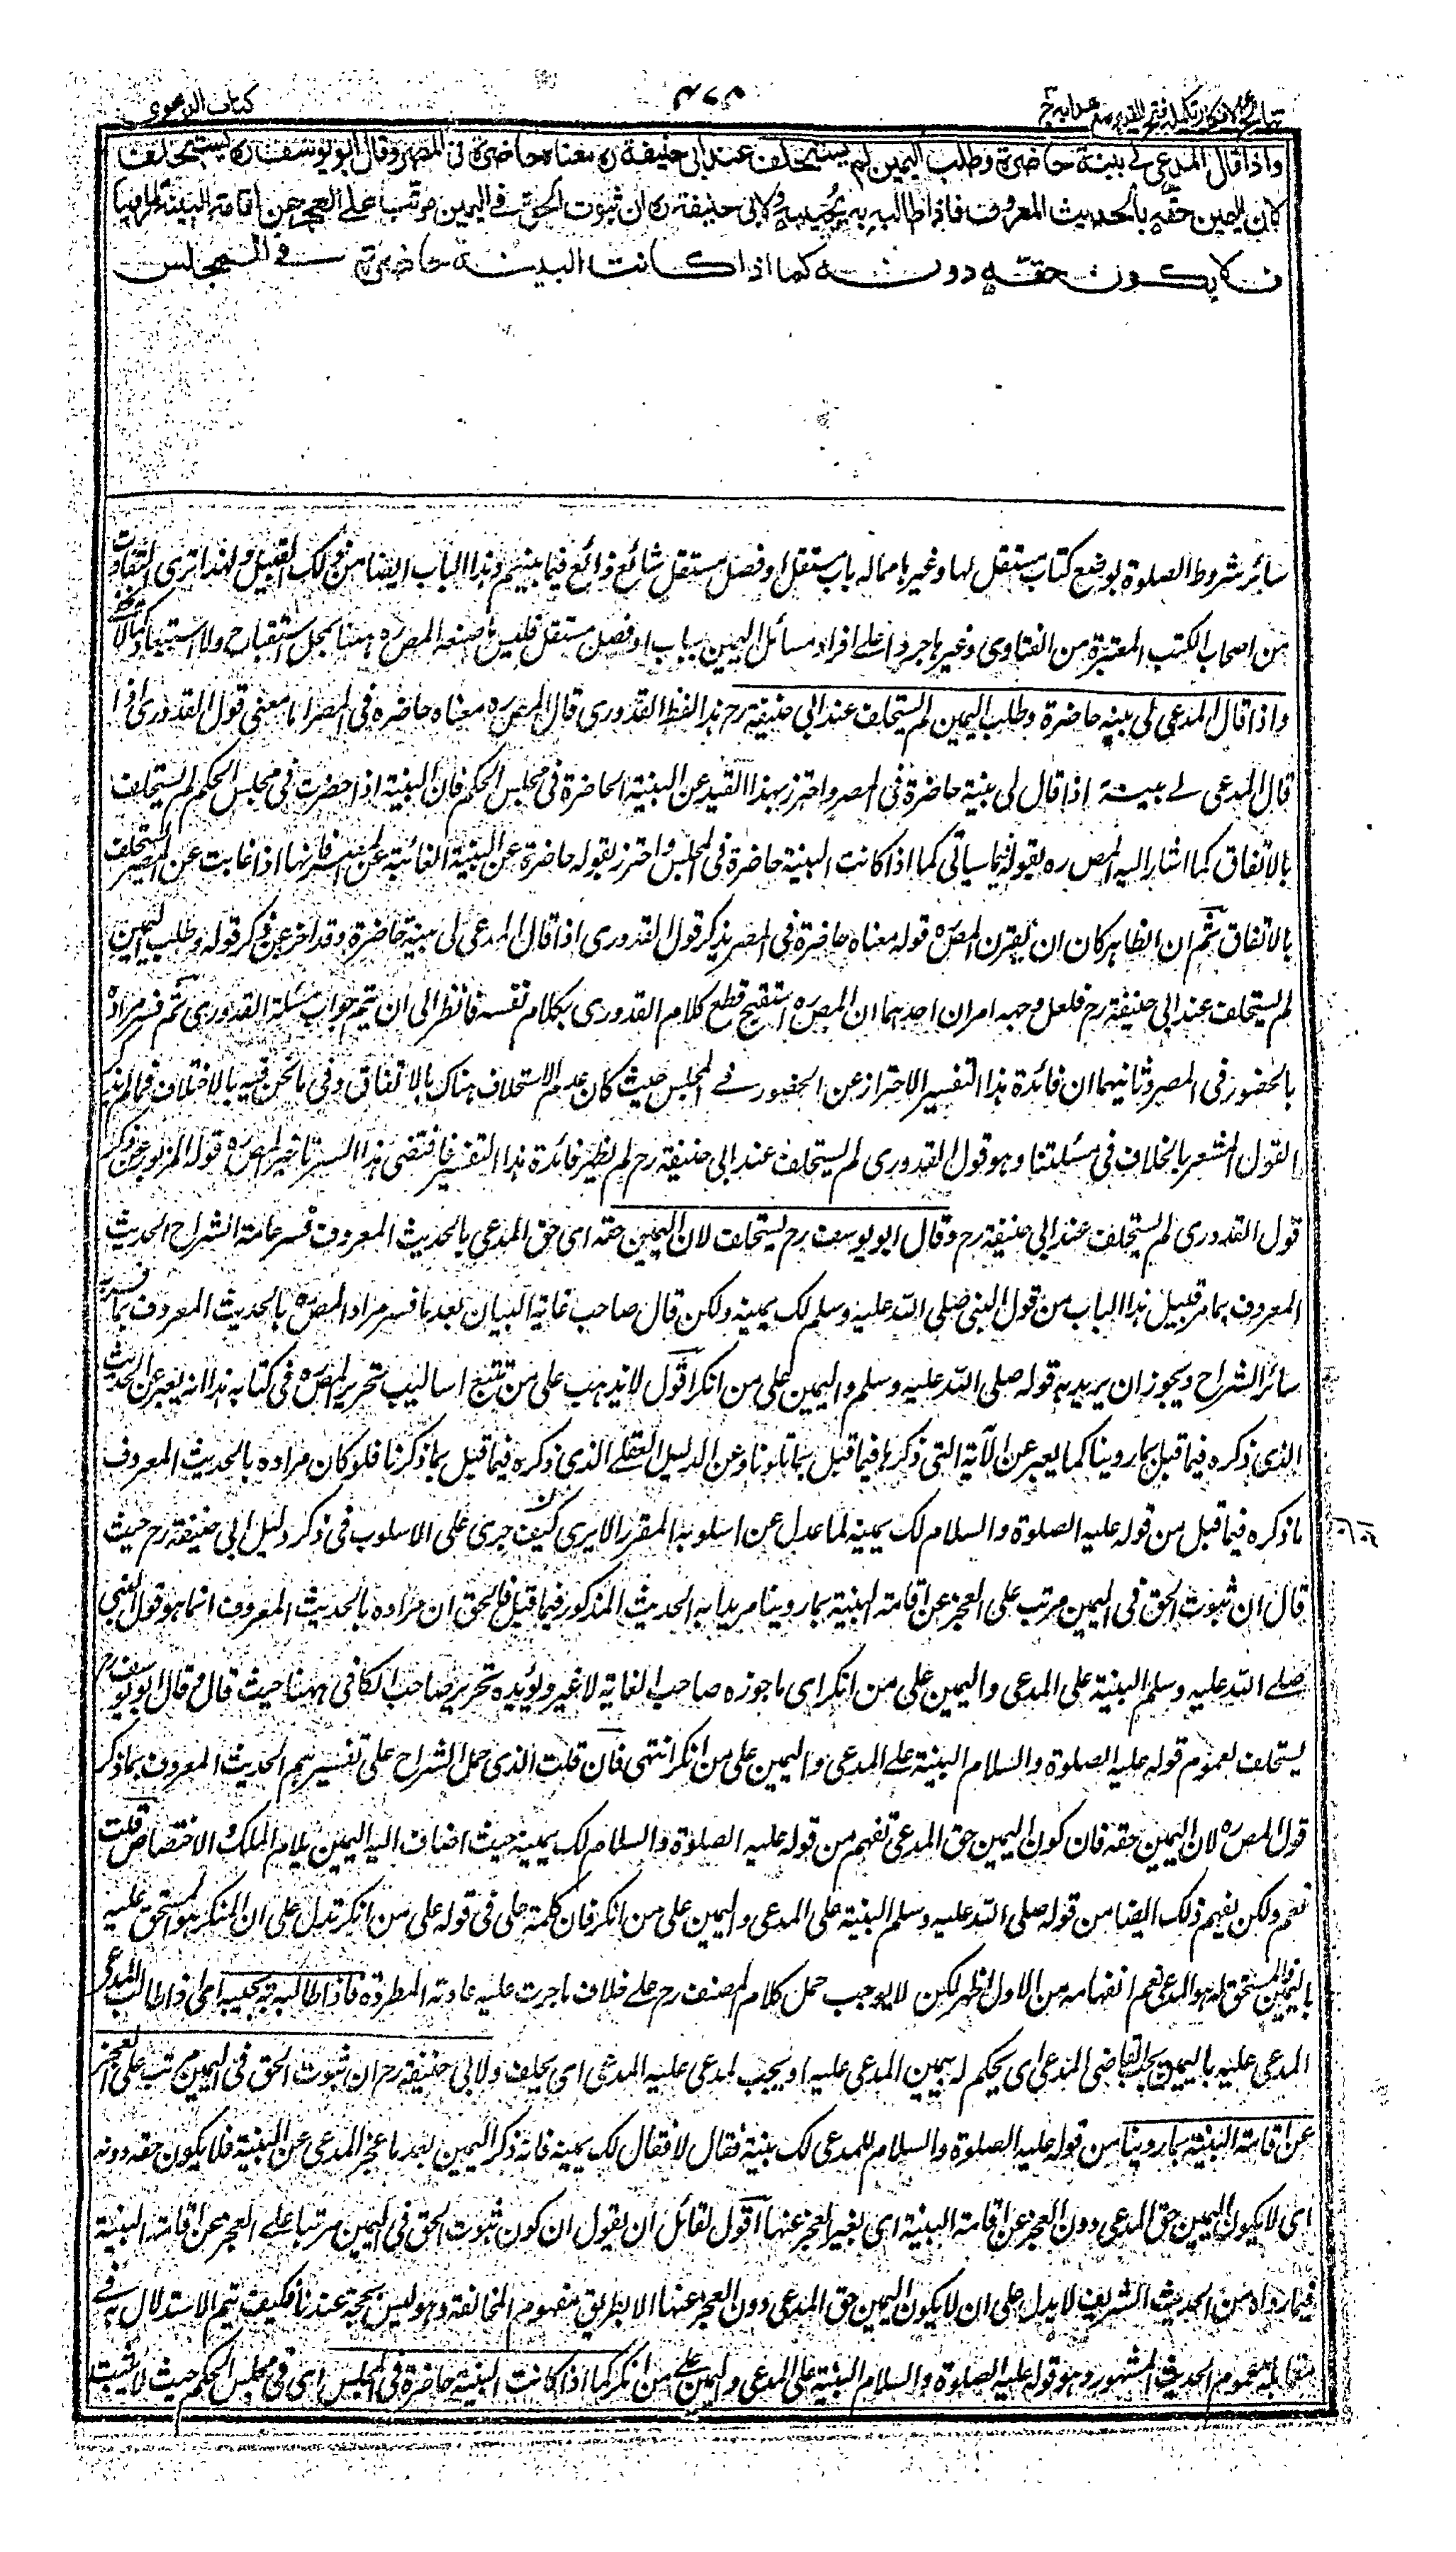 نتائج الافكار تكملة فتح القدير مع هداية ج
كتاب الدعوى
واذا قال المدعى لى بينة حاضرة وطلب اليمين لم يستحلف عند ابى حنيفة ره معناه حاضرة فى المصر وقال ابو يوسف ره يستحلف
لان اليمين حقه بالحديث المعروف فاذا طالبه به يجيبه ولابى حنيفة ره ان ثبوت الحق فى اليمين مرتب على العجز عن اقامة البينة لما روينا
فلا يكون حقه دونه كما اذا كانت البينة حاضرة فى المجلس
سائر شروط الصلوة بوضع كتاب مستقل لها وغيرها مماله باب مستقل او فصل مستقل شائع ذائع فيما بينهم وهذا الباب ايضا من ذلك القبيل ولهذا ترى الثقات
من اصحاب الكتب المعتبرة من الفتاوى وغيرها جروا على افراد مسائل اليمين بباب او فصل مستقل فليس ما صنعه المص ره ههنا بمحل استقباح ولا استبعاد
واذا قال المدعى لى بينة حاضرة وطلب اليمين لم يستحلف عند ابى حنيفة رح هذا لفظ القدورى قال المص ره معناه حاضرة فى المصر اى معنى قول القدورى اذا
قال المدعى لى بينة اذا قال لى بينة حاضرة فى المصر واحترز بهذا القيد عن البينة الحاضرة فى مجلس الحكم فان البينة اذا حضرت فى مجلس الحكم لم يستحلف
بالاتفاق كما اشار اليه المص ره بقوله فيما سياتى كما اذا كانت البينة حاضرة فى المجلس واحترز بقوله حاضرة عن البينة الغائبة عن المصر فانها اذا غابت عن المصر يستحلف
بالاتفاق ثم ان الظاهر كان ان يقرن المص ره قوله معناه حاضرة فى المصر بذكر قول القدورى اذا قال المدعى لى بينة حاضرة وقد اخر عن ذكر قوله وطلب اليمين
لم يستحلف عند ابى حنيفة رح فلعل وجهه امران احدهما ان المص ره استقبح قطع كلام القدورى بكلام نفسه فانتظر الى ان يتم جواب مسئلة القدورى ثم فسر مراده
بالحضور فى المصر وثانيهما ان فائدة هذا التفسير الاحتراز عن الحضور فى المجلس حيث كان عدم الاستحلاف هناك بالاتفاق وفى ما نحن فيه بالاختلاف فما لم يذكر
القول المشعر بالخلاف فى مسئلتنا وهو قول القدورى لم يستحلف عند ابى حنيفة رح لم يظهر فائدة هذا التفسير فاقتضى هذا السر تاخير المص ره قوله المزبور عن ذكر
قول القدورى لم يستحلف عند ابى حنيفة رح وقال ابو يوسف رح يستحلف لان اليمين حقه اى حق المدعى بالحديث المعروف فسر عامة الشراح الحديث
المعروف بما مر قبيل هذا الباب من قول النبى صلى الله عليه وسلم لك يمينه ولكن قال صاحب غاية البيان بعد ما فسر مراد المص ره بالحديث المعروف بما فسر به
سائر الشراح ويجوز ان يريد به قوله صلى الله عليه وسلم واليمين على من انكر اقول لا يذهب على من تتبع اساليب تحرير المص ره فى كتابه هذا انه يعبر عن الحديث
الذى ذكره فيما قبل بما روينا كما يعبر عن الآية التى ذكرها فيما قبل بما تلونا وعن الدليل العقلى الذى ذكره فيما قبل بما ذكرنا فلو كان مراده بالحديث المعروف
ما ذكره فيما قبل من قوله عليه الصلوة والسلام لك يمينه لما عدل عن اسلوبه المقرر الا يرى انه كيف جرى على الاسلوب فى ذكر دليل ابى حنيفة رح حيث
قال ان ثبوت الحق فى اليمين مرتب على العجز عن اقامة البينة بما روينا مريدا به الحديث المذكور فيما قبل فالحق ان مراده بالحديث المعروف انما هو قول النبى
صلى الله عليه وسلم البينة على المدعى واليمين على من انكر اى ما جوزه صاحب الغاية لا غير ويؤيده تحرير صاحب الكافى ههنا حيث قال وقال ابو يوسف رح
يستحلف لعموم قوله عليه الصلوة والسلام البينة على المدعى واليمين على من انكر انتهى فان قلت الذى حمل الشراح على تفسيرهم الحديث المعروف بما ذكر
قول المص ره لان اليمين حقه فان كون اليمين حق المدعى تفهم من قوله عليه الصلوة والسلام لك يمينه حيث اضاف اليه اليمين بلام الملك والاختصاص قلت
نعم ولكن يفهم ذلك ايضا من قوله صلى الله عليه وسلم البينة على المدعى واليمين على من انكر فان كلمة على فى قوله على من انكر تدل على ان المنكر هو المستحق عليه
باليمين فالمستحق له هو المدعى نعم انفهامه من الاول اظهر لكن لا يوجب حمل كلام المصنف رح على خلاف ما جرت عليه عادته المطردة فاذا طالبه به يجيبه اى اذا طالب المدعى
المدعى عليه باليمين يجيب القاضى المدعى اى يحكم له بيمين المدعى عليه او يجيب المدعى عليه المدعى اى يحلف ولابى حنيفة رح ان ثبوت الحق فى اليمين مرتب على العجز
عن اقامة البينة بما روينا من قوله عليه الصلوة والسلام للمدعى لك بينة فقال لا فقال لك يمينه فانه ذكر اليمين بعد ما عجز المدعى عن البينة فلا يكون حقه دونه
اى لا يكون اليمين حق المدعى دون العجز عن اقامة البينة اى بغير العجز عنها اقول لقائل ان يقول ان كون ثبوت الحق فى اليمين مرتبا على العجز عن اقامة البينة
فيما رواه من الحديث الشريف لا يدل على ان لا يكون اليمين حق المدعى دون العجز عنها الا بطريق مفهوم المخالفة وهو ليس بحجة عندنا فكيف يتم الاستدلال به فى
مقابلة عموم الحديث المشهور وهو قوله عليه الصلوة والسلام البينة على المدعى واليمين على من انكر كما اذا كانت البينة حاضرة فى المجلس اى فى مجلس الحكم حيث لا يثبت